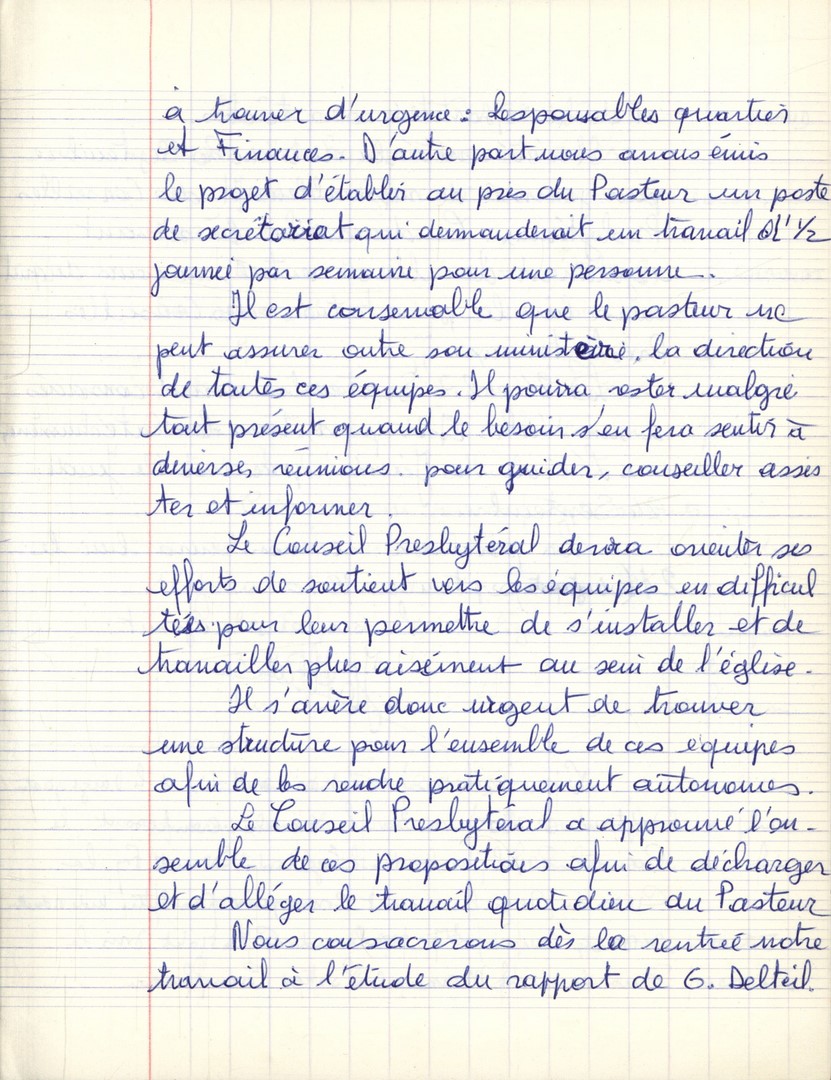 à trouver d'urgence : Responsables quartier
et Finances. D'autre part nous avons émis
le projet d'établir au près du Pasteur un poste
de secrétariat qui demanderait un travail d'1/2
journée par semaine pour une personne.
Il est consevable que le pasteur ne
peut assurer outre son ministère, la direction
de toutes ces équipes. Il pourra rester malgré
tout présent quand le besoin s'en fera sentir à
diverses réunions. pour guider, conseiller assis
ter et informer.
Le Conseil Presbytéral devra orienter ses
efforts de soutient vers les équipes en difficul
tés pour leur permettre de s'installer et de
travailler plus aisément au sein de l'église.
Il s'avère donc urgent de trouver
une structure pour l'ensemble de ces équipes
afin de les rendre pratiquement autonomes.
Le Conseil Presbytéral a approuvé l'en-
semble de ces propositions afin de décharger
et d'alléger le travail quotidien du Pasteur
Nous consacrerons dès la rentrée notre
travail à l'étude du rapport de G. Delteil.